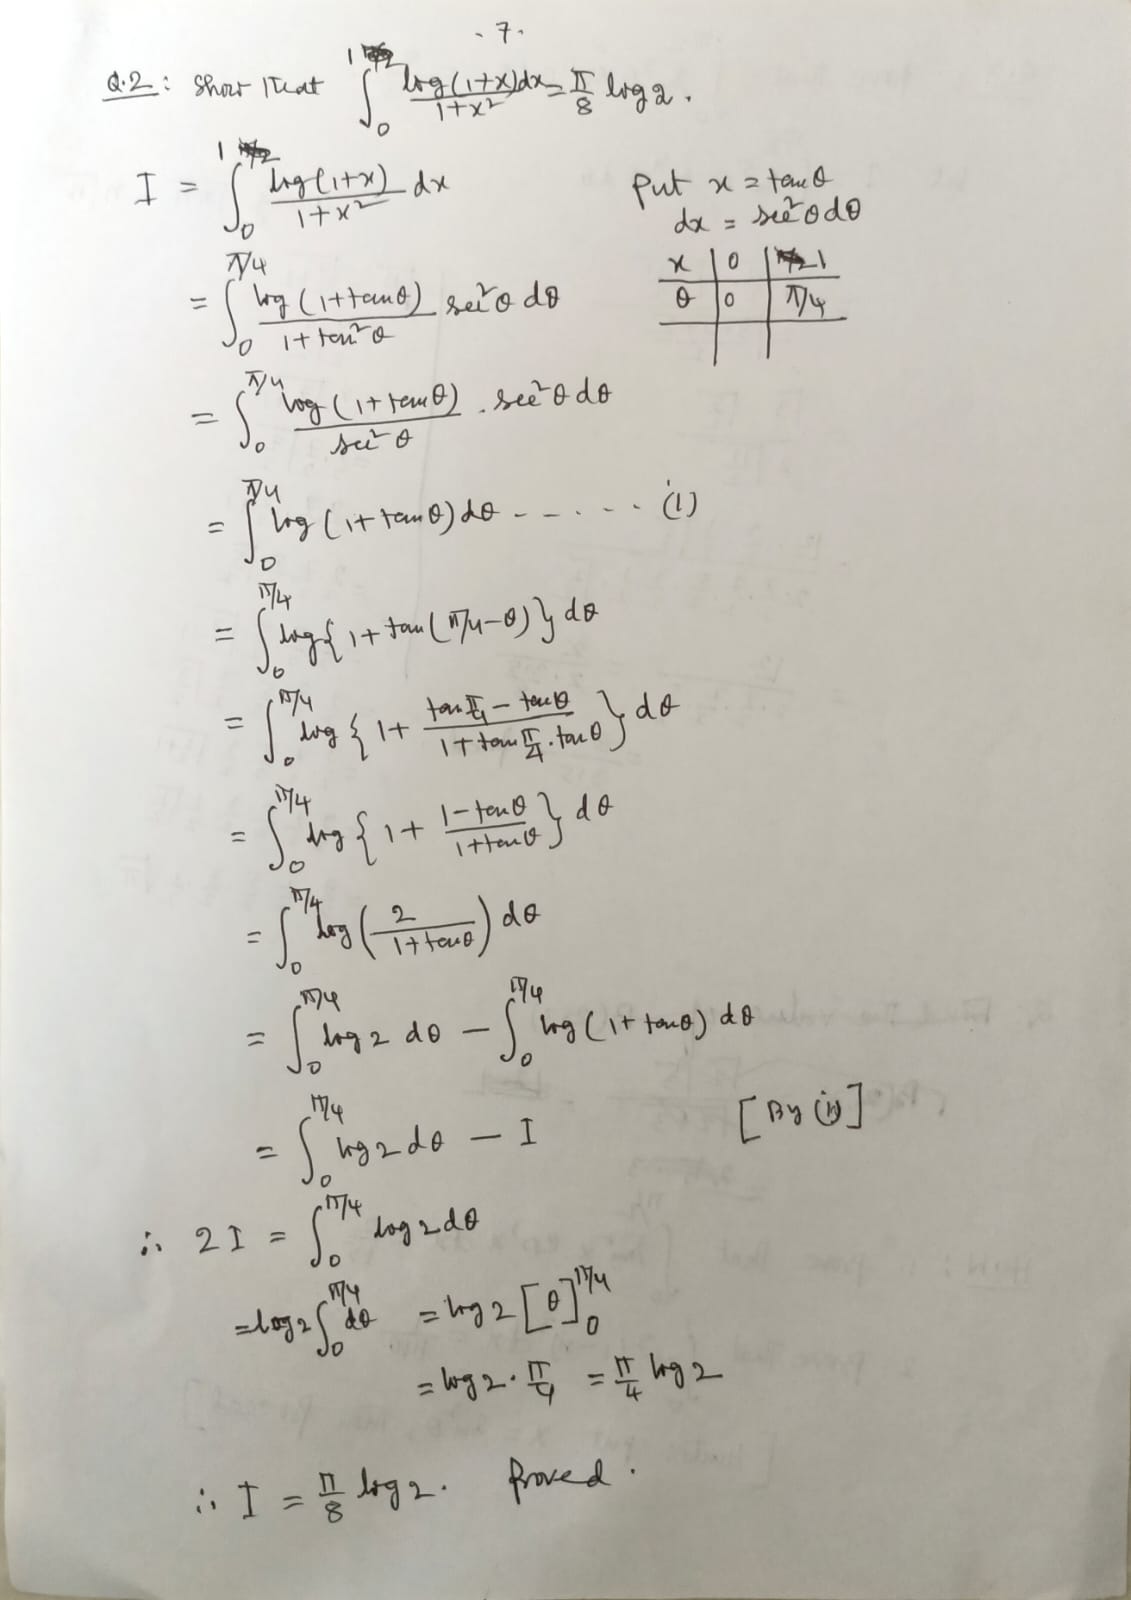 . 7 .
Q.2 : Show that ∫₀¹ log(1+x)dx / 1+x² = π/8 log 2 .
I = ∫₀¹ log(1+x) / 1+x² dx
Put x = tan θ
dx = sec²θ dθ
x | 0 | 1
θ | 0 | π/4
= ∫₀^π/4 log (1+tanθ) / 1+tan²θ sec²θ dθ
= ∫₀^π/4 log (1+tanθ) / sec²θ . sec²θ dθ
= ∫₀^π/4 log (1+tanθ) dθ - - . . . . (1)
= ∫₀^π/4 log { 1+ tan (π/4-θ) } dθ
= ∫₀^π/4 log { 1+ tan π/4 - tanθ / 1+tan π/4 . tanθ } dθ
= ∫₀^π/4 log { 1+ 1-tanθ / 1+tanθ } dθ
= ∫₀^π/4 log ( 2 / 1+tanθ ) dθ
= ∫₀^π/4 log 2 dθ - ∫₀^π/4 log (1+tanθ) dθ
= ∫₀^π/4 log 2 dθ - I [ By (i) ]
∴ 2I = ∫₀^π/4 log 2 dθ
= log 2 ∫₀^π/4 dθ = log 2 [θ]₀^π/4
= log 2 . π/4 = π/4 log 2
∴ I = π/8 log 2 . Proved .